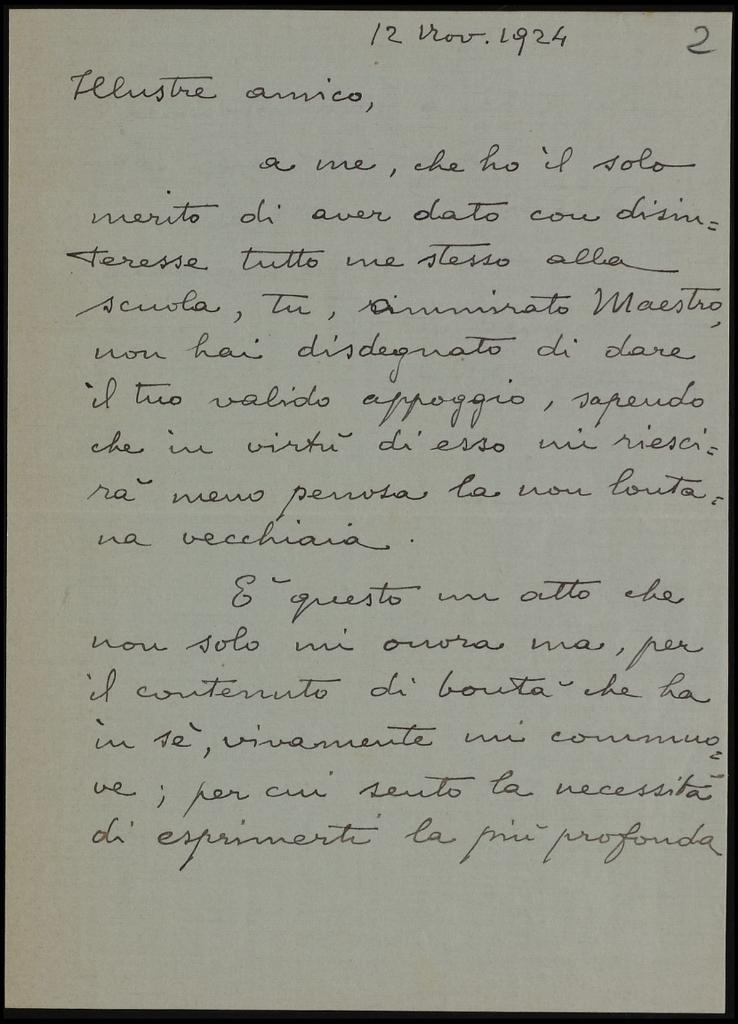 12 Nov. 1924
2
Illustre amico,
a me, che ho il solo
merito di aver dato con disin=
teresse tutto me stesso alla
scuola, tu, ammirato Maestro,
non hai disdegnato di dare
il tuo valido appoggio, sapendo
che in virtù di esso mi riesci=
rà meno penosa la non lonta=
na vecchiaia.
È questo un atto che
non solo mi onora ma, per
il contenuto di bontà che ha
in sè, vivamente mi commuo=
ve; per cui sento la necessità
di esprimerti la più profonda